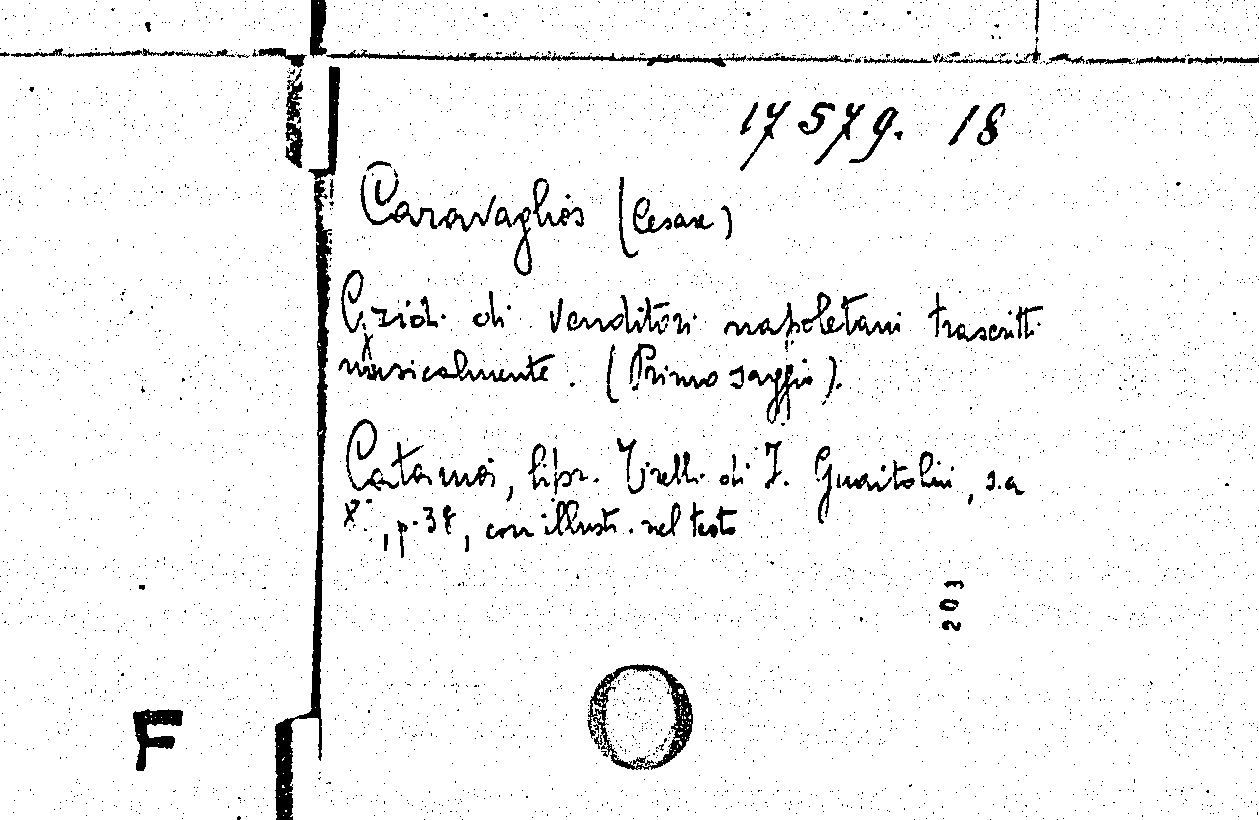 17579. 18
Caravaglios (Cesare)
Gridi di venditori napoletani trascritti
musicalmente. (Primo saggio).
Catania, lipr. Tirelli di F. Guaitolini, s.a
8°, p. 38, con illustr. nel testo
203
F